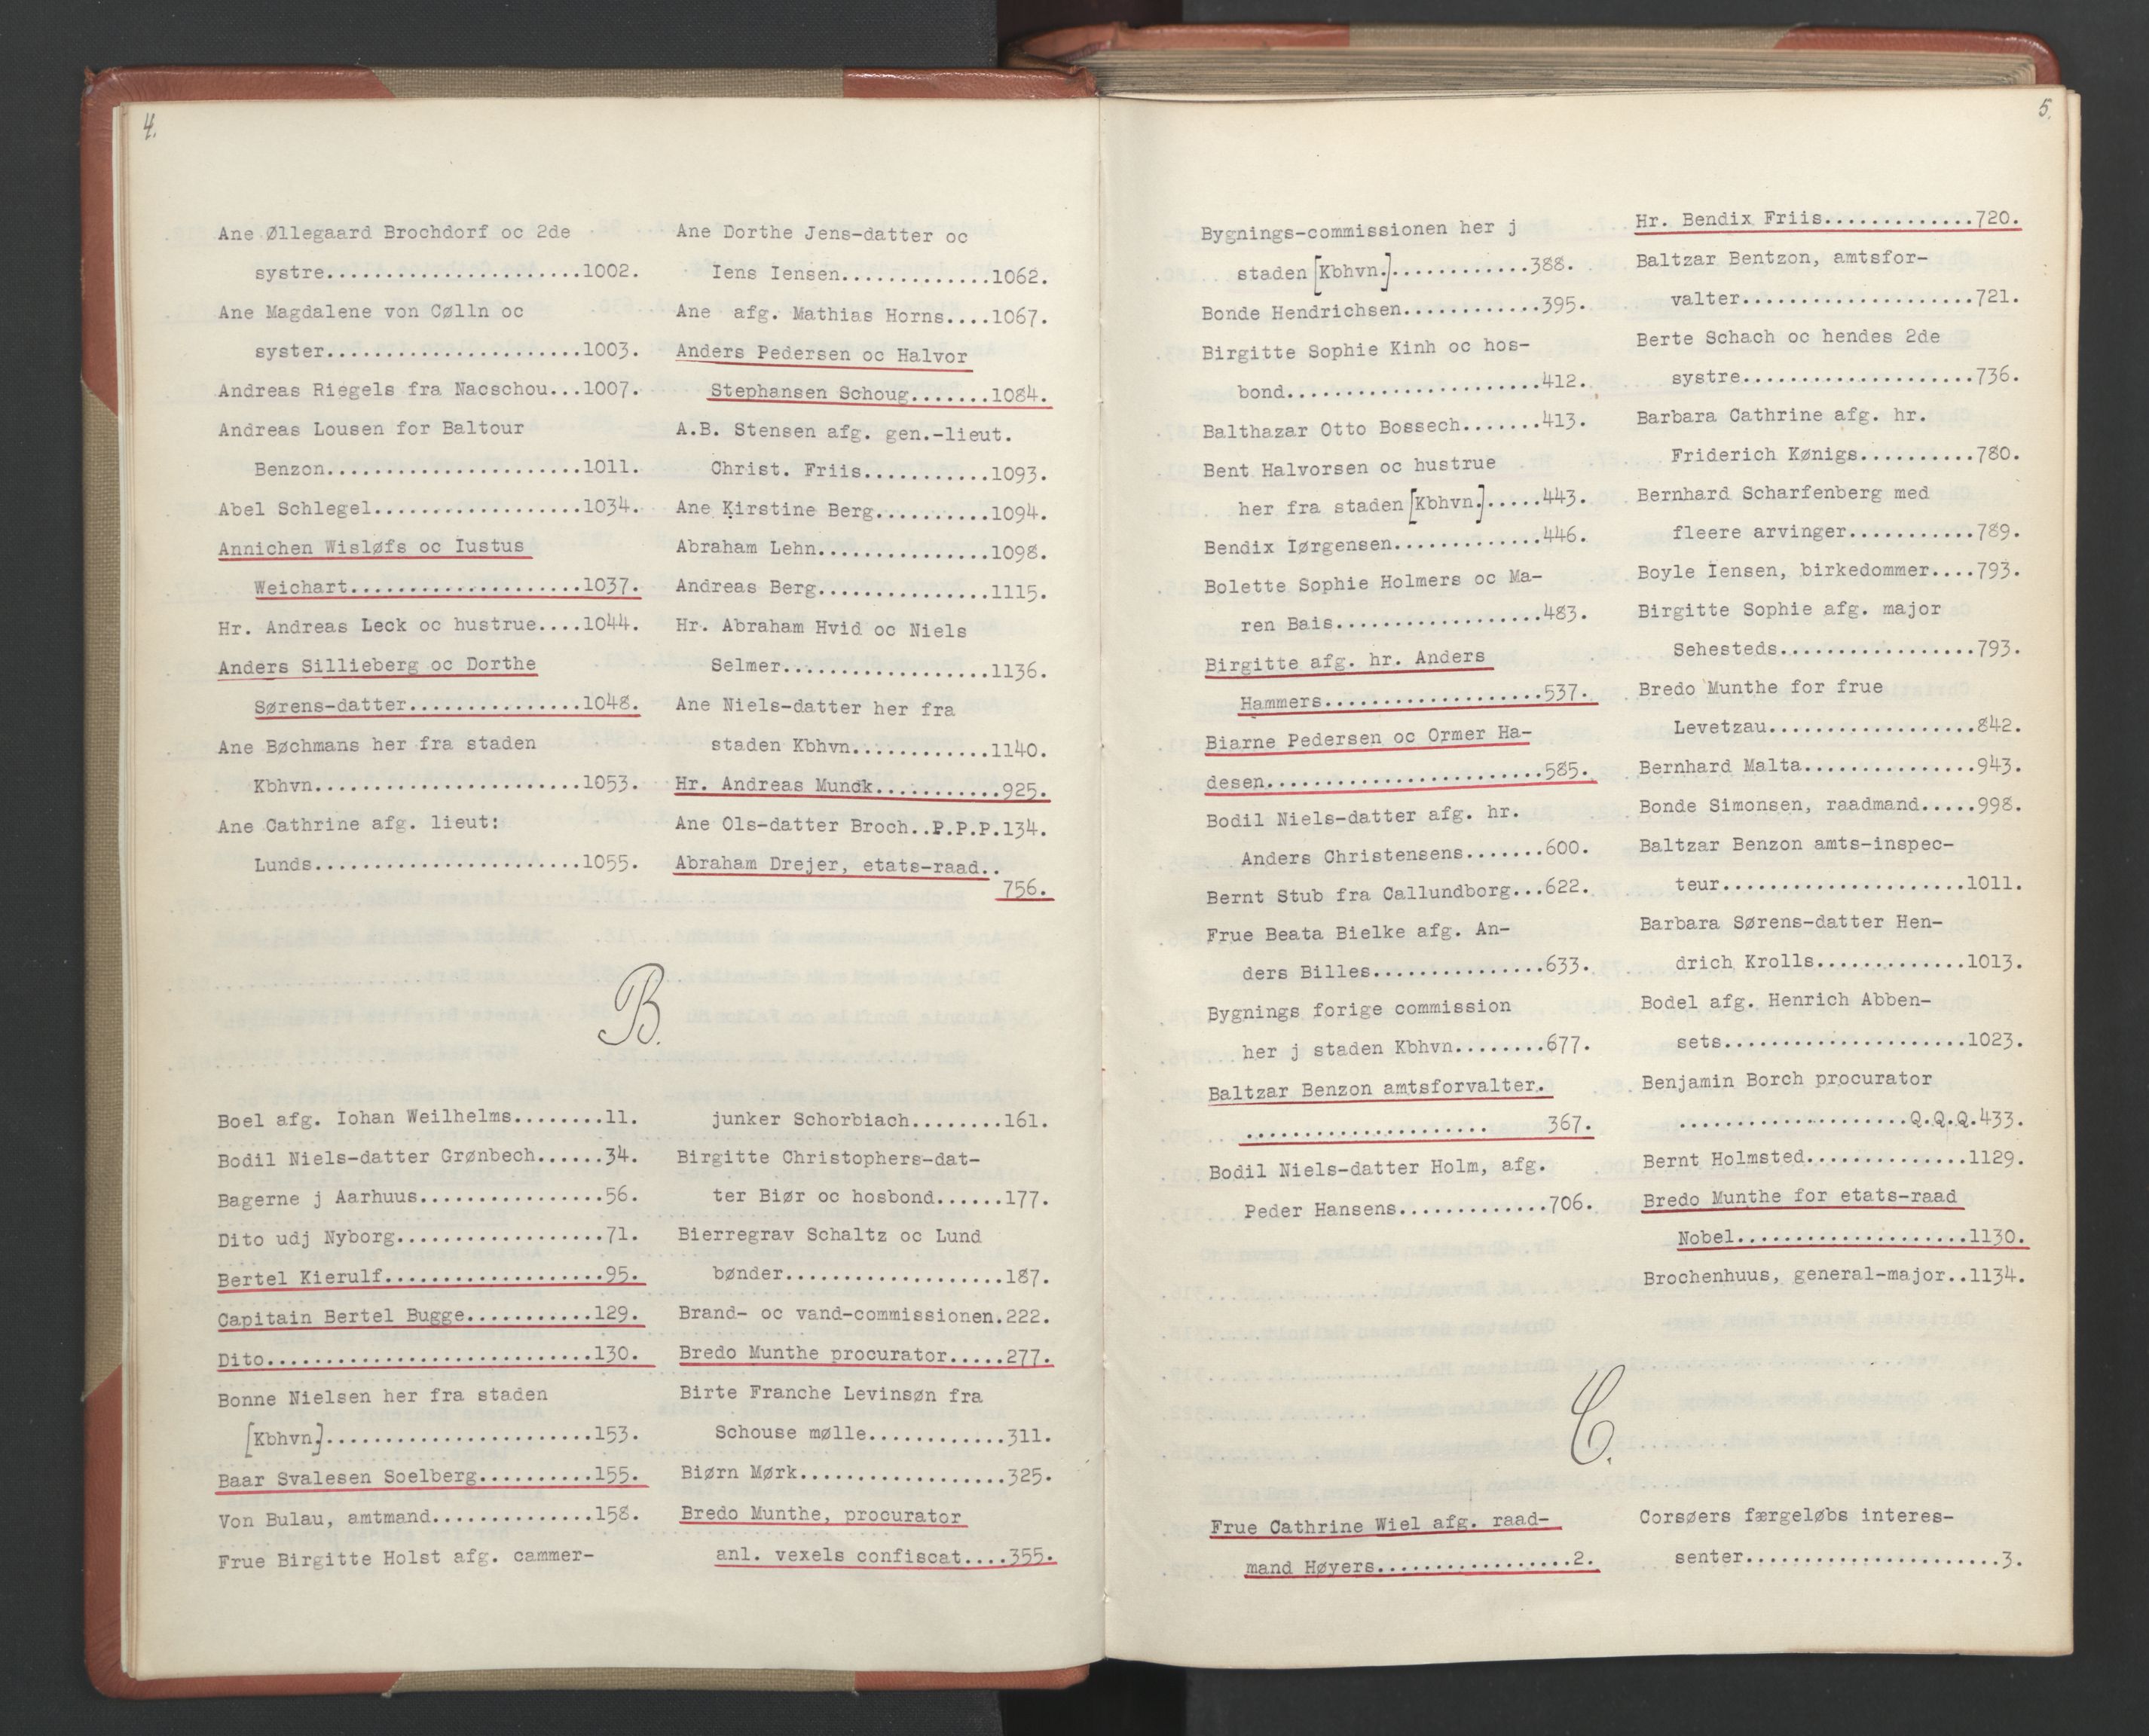 4.
Ane Øllegaard Brochdorf oc 2de
systre......................1002.
Ane Magdalene von Cølln oc
syster......................1003.
Andreas Riegels fra Nacschou...1007.
Andreas Lousen for Baltour
Benzon......................1011.
Abel Schlegel..................1034.
Annichen Wisløfs oc Iustus
Weichart....................1037.
Hr. Andreas Leck oc hustrue....1044.
Anders Sillieberg oc Dorthe
Sørens-datter...............1048.
Ane Bøchmans her fra staden
Kbhvn.......................1053.
Ane Cathrine afg. lieut:
Lunds.......................1055.
Ane Dorthe Jens-datter oc
Iens Iensen.............1062.
Ane afg. Mathias Horns....1067.
Anders Pedersen oc Halvor
Stephansen Schoug.......1084.
A.B. Stensen afg. gen.-lieut.
Christ. Friis...........1093.
Ane Kirstine Berg..........1094.
Abraham Lehn...............1098.
Andreas Berg...............1115.
Hr. Abraham Hvid oc Niels
Selmer..................1136.
Ane Niels-datter her fra
staden Kbhvn............1140.
Hr. Andreas Munck...........925.
Ane Ols-datter Broch..P.P.P.134.
Abraham Drejer, etats-raad..
756.
B.
Boel afg. Iohan Weilhelms........11.
Bodil Niels-datter Grønbech......34.
Bagerne j Aarhuus................56.
Dito udj Nyborg..................71.
Bertel Kierulf...................95.
Capitain Bertel Bugge...........129.
Dito............................130.
Bonne Nielsen her fra staden
[Kbhvn.].......................153.
Baar Svalesen Soelberg..........155.
Von Bulau, amtmand..............158.
Frue Birgitte Holst afg. cammer-
junker Schorbiach........161.
Birgitte Christophers-dat-
ter Biør oc hosbond......177.
Bierregrav Schaltz oc Lund
bønder...................187.
Brand- oc vand-commissionen.222.
Bredo Munthe procurator.....277.
Birte Franche Levinsøn fra
Schouse mølle............311.
Biørn Mørk..................325.
Bredo Munthe, procurator
anl. vexels confiscat....355.
5.
Bygnings-commissionen her j
staden [Kbhvn.]............388.
Bonde Hendrichsen............395.
Birgitte Sophie Kinh oc hos-
bond......................412.
Balthazar Otto Bossech.......413.
Bent Halvorsen oc hustrue
her fra staden [Kbhvn.].....443.
Bendix Iørgensen.............446.
Bolette Sophie Holmers oc Ma-
ren Bais..................483.
Birgitte afg. hr. Anders
Hammers...................537.
Biarne Pedersen oc Ormer Ha-
desen........................585.
Bodil Niels-datter afg. hr.
Anders Christensens.......600.
Bernt Stub fra Callundborg...622.
Frue Beata Bielke afg. An-
ders Billes...............633.
Bygnings forige commission
her j staden Kbhvn........677.
Baltzar Benzon amtsforvalter.
..................... 367.
Bodil Niels-datter Holm, afg.
Peder Hansens.............706.
Hr. Bendix Friis.............720.
Baltzar Bentzon, amtsfor-
valter....................721.
Berte Schach oc hendes 2de
systre....................736.
Barbara Cathrine afg. hr.
Friderich Kønigs..........780.
Bernhard Scharfenberg med
fleere arvinger...........789.
Boyle Iensen, birkedommer....793.
Birgitte Sophie afg. major
Sehesteds.................793.
Bredo Munthe for frue
Levetzau..................842.
Bernhard Malta...............943.
Bonde Simonsen, raadmand.....998.
Baltzar Benzon amts-inspec-
teur.....................1011.
Barbara Sørens-datter Hen-
drich Krolls.............1013.
Bodel afg. Henrich Abben-
sets.....................1023.
Benjamin Borch procurator
....................Q.Q.Q.433.
Bernt Holmsted..............1129.
Bredo Munthe for etats-raad
Nobel....................1130.
Brochenhuus, general-major..1134.
C.
Frue Cathrine Wiel afg. raad-
mand Høyers.................2.
Corsøers færgeløbs interes-
senter......................3.